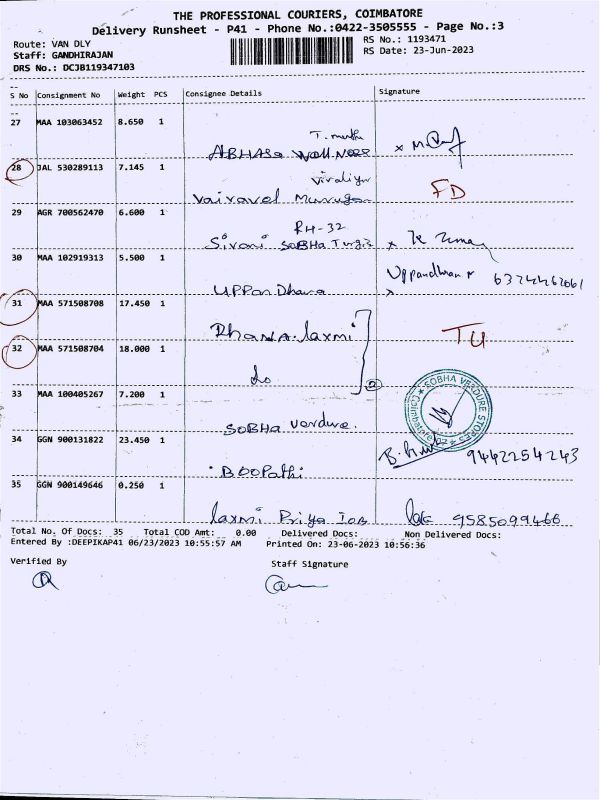 THE PROFESSIONAL COURIERS, COIMBATORE
Delivery Runsheet - P41 - Phone No.:0422-3505555 - Page No.:3
Route: VAN DLY
RS No.: 1193471
Staff: GANDHIRAJAN
RS Date: 23-Jun-2023
DRS No.: DCJB119347103
S No Consignment No Weight PCS Consignee Details Signature
27 MAA 103063452 8.650 1
ABHASA
28 JAL 530289113 7.145 1
Vairavel Murugan
FD
29 AGR 700562470 6.600 1
RH-32
Sivani SOBHA
30 MAA 102919313 5.500 1
UPPan Dhara
6374462061
31 MAA 571508708 17.450 1
Dhana.laxmi
TU
32 MAA 571508704 18.000 1
do
2
33 MAA 100405267 7.200 1
SOBHA Verdure.
SOBHA VERDURE STORES
Coimbatore
34 GGN 900131822 23.450 1
BOOPathi
9442254243
35 GGN 900149646 0.250 1
laxmi Priya IOB
9585099466
Total No. Of Docs: 35 Total COD Amt: 0.00 Delivered Docs: Non Delivered Docs:
Entered By :DEEPIKAP41 06/23/2023 10:55:57 AM Printed On: 23-06-2023 10:56:36
Verified By
Staff Signature